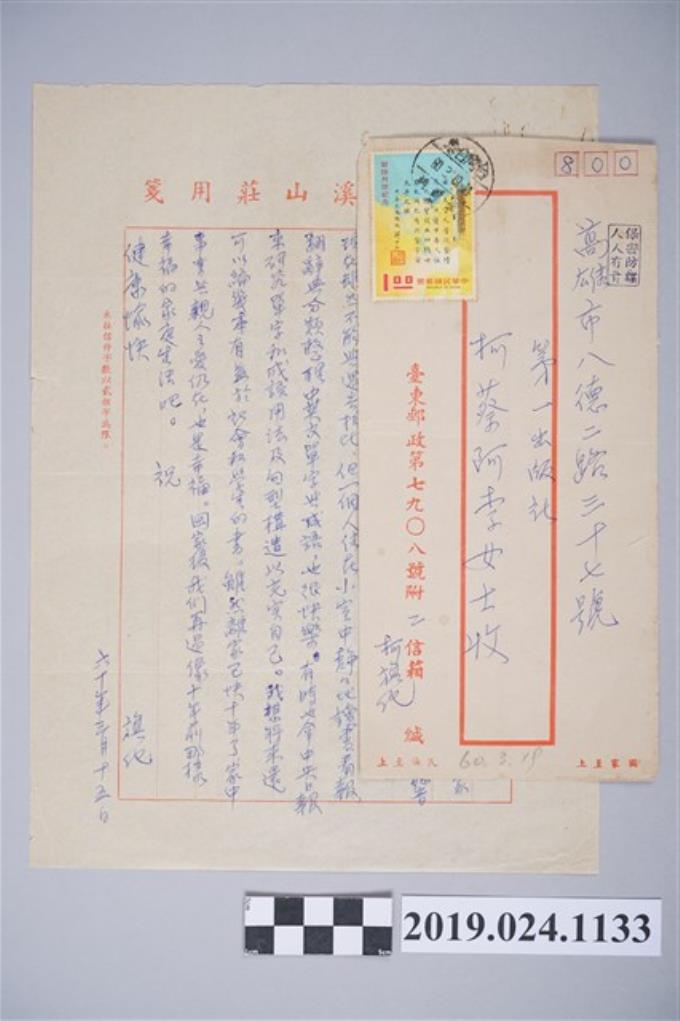 溪山莊用箋
現在雖然不能與過去相比，但一個人住在小室中靜靜地讀書看報
翻辭典分類整理中英文單字與成語，也很快樂。有時也拿中央日報
來研究單字和成語用法及句型構造以充實自己。我想將來還
可以編幾本有益於社會和學生的書。雖然離家已快十年了家中
事業與親人
幸福的家庭生活吧。 祝
健康愉快
旗化
六十年三月十五日
來往信件字數以貳佰字為限。
800
保密防諜
人人有責
高雄市八德二路三十七號
第一出版社
柯蔡阿李女士收
臺東郵政第七九〇八號附二信箱 緘
柯旗化
國家至上
民族至上
60.3.19
1.00
中華民國郵票
2019.024.1133